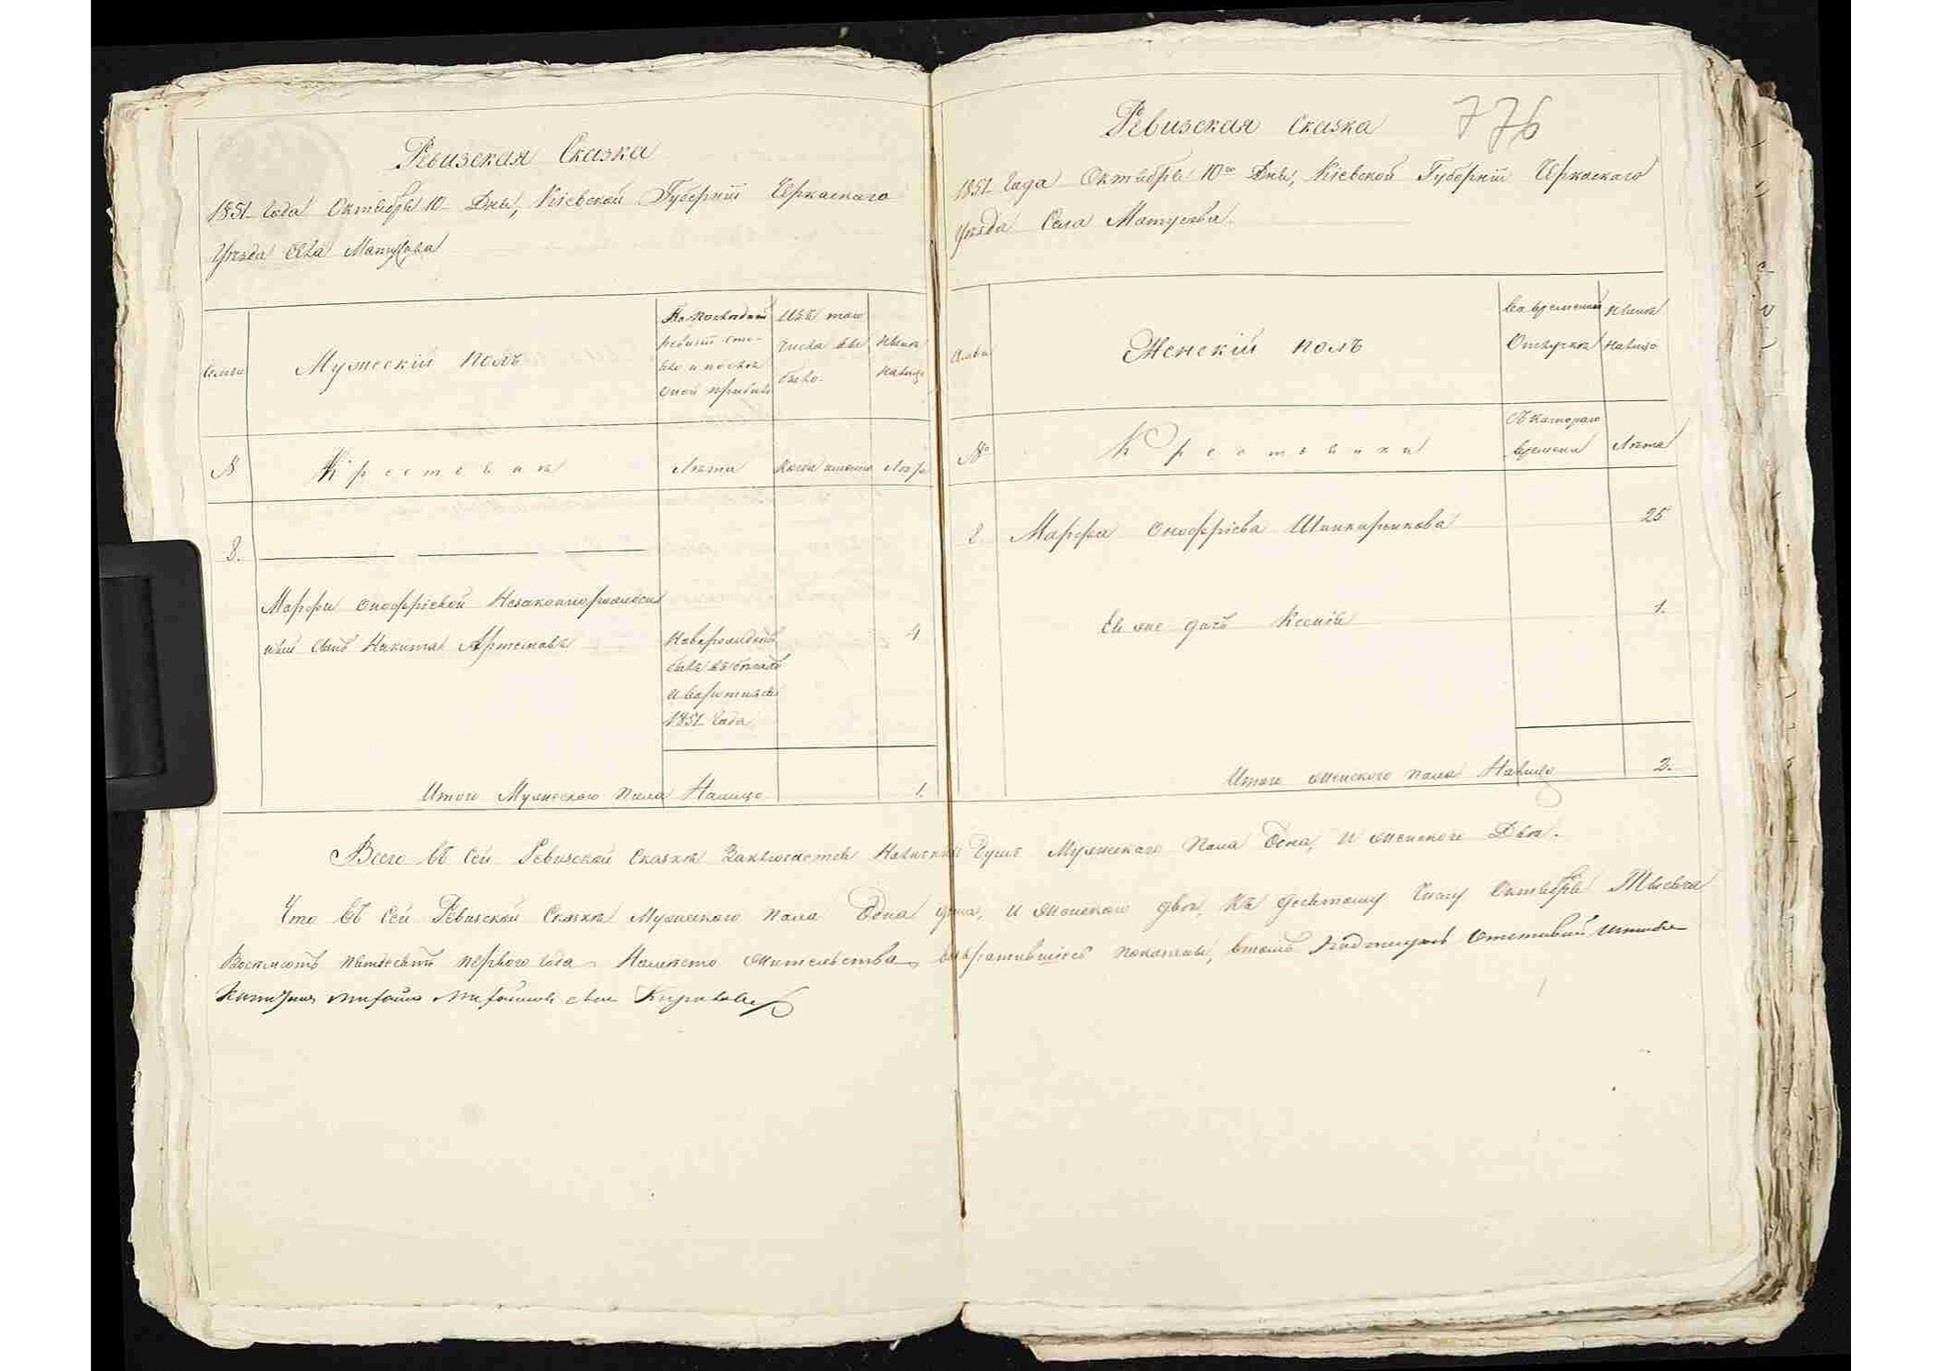 Ревизская Сказка
1851 Года Октября 10 Дня, Кіевской Губерніи Черкаскаго
Уезда Села Матусова
Семьи
Мужескій полъ
На последней
ревизіи сос-
яло и после
оной прибыло
Изъ того
числа вы
было.
Ныне
налицо
№
Крестьяне
Лета
Когда именно
Лета
8.
Марфы Онофріевой Незаконнорожден
ный Сынъ Никита Артемовъ
4
Новорожденъ
былъ въ бегахъ
и возвратился
1851 Года
Итого Мужескаго пола Налицо 1.
Ревизская Сказка 776
1851 Года Октября 10го Дня, Кіевской Губерніи Черкаскаго
Уезда Села Матусова.
Семьи
Женскій полъ
Во временной
Отлучке
Ныне
Налицо
№
Крестьянки
Съ котораго
времени
Лета
8. Марфа Онофріева 25
Ея же дочь Ксенія 1.
Итого женского пола Налицо 2.
Всего въ сей Ревизской сказке Заключается Наличныхъ Душъ Мужескаго Пола Одна, и женскаго Две.
Что въ сей Ревизской Сказке Мужескаго пола Одна душа, и женскаго две, къ десятому Числу Октября Тысяча
Восемьсотъ пятьдесятъ перваго года На место жительства возвратившіеся показаны, втомъ Подписуюсь Отставной Штабсъ
Капитанъ Михайло Михайловъ сынъ